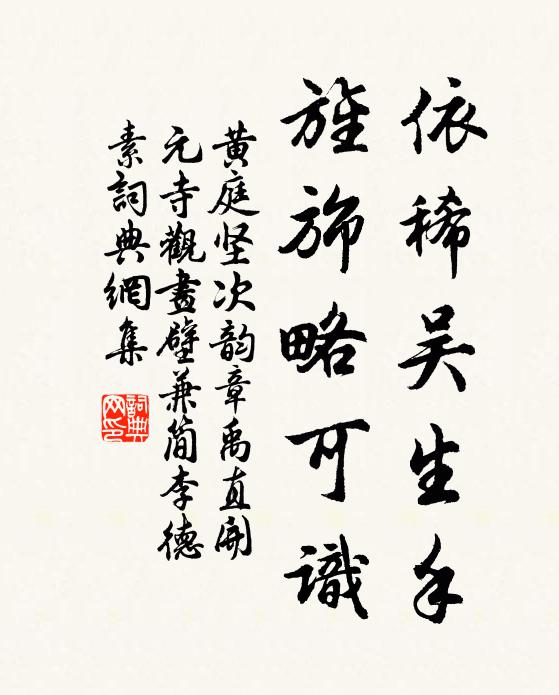 依稀吴生手
旌斾略可識
黄庭坚次韵章禹直開
元寺觀畫壁兼简李德
素詞典網集
詞典
网印